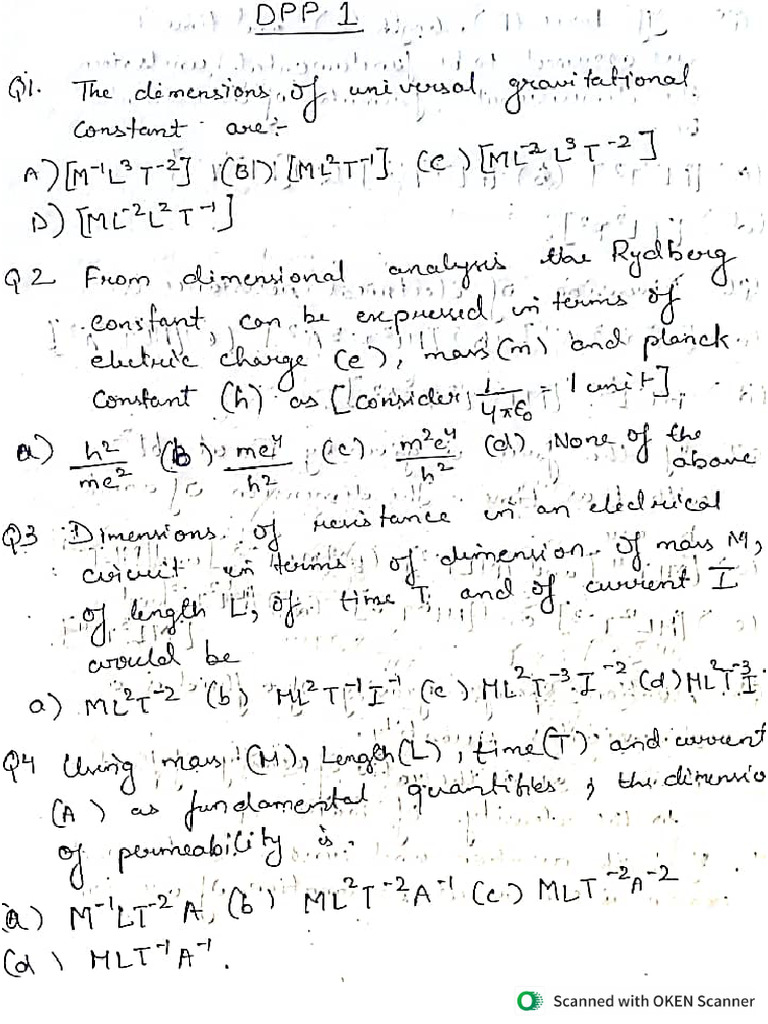 DPP 1
Q1. The dimensions of universal gravitational
constant are:-
A) [M⁻¹L³T⁻²] (B) [ML²T⁻¹] (C) [ML⁻²L³T⁻²]
D) [ML⁻²L²T⁻¹]
Q2 From dimensional analysis the Rydberg
constant can be expressed in terms of
electric charge (e), mass (m) and planck
constant (h) as [consider 1/4πε₀ = 1 unit]
a) h²/me² (b) me⁴/h² (c) m²e⁴/h² (d) None of the
above
Q3 Dimensions of resistance in an electrical
circuit in terms of dimension of mass M,
of length L, of time T and of current I
would be
a) ML²T⁻² (b) ML²T⁻¹I⁻¹ (c) ML²T⁻³I⁻² (d) ML²T⁻³I
Q4 Using mass (M), Length (L), time (T) and current
(A) as fundamental quantities, the dimensio
of permeability is.
a) M⁻¹LT⁻²A (b) ML²T⁻²A⁻¹ (c) MLT⁻²A⁻²
(d) MLT⁻¹A⁻¹.
Scanned with OKEN Scanner